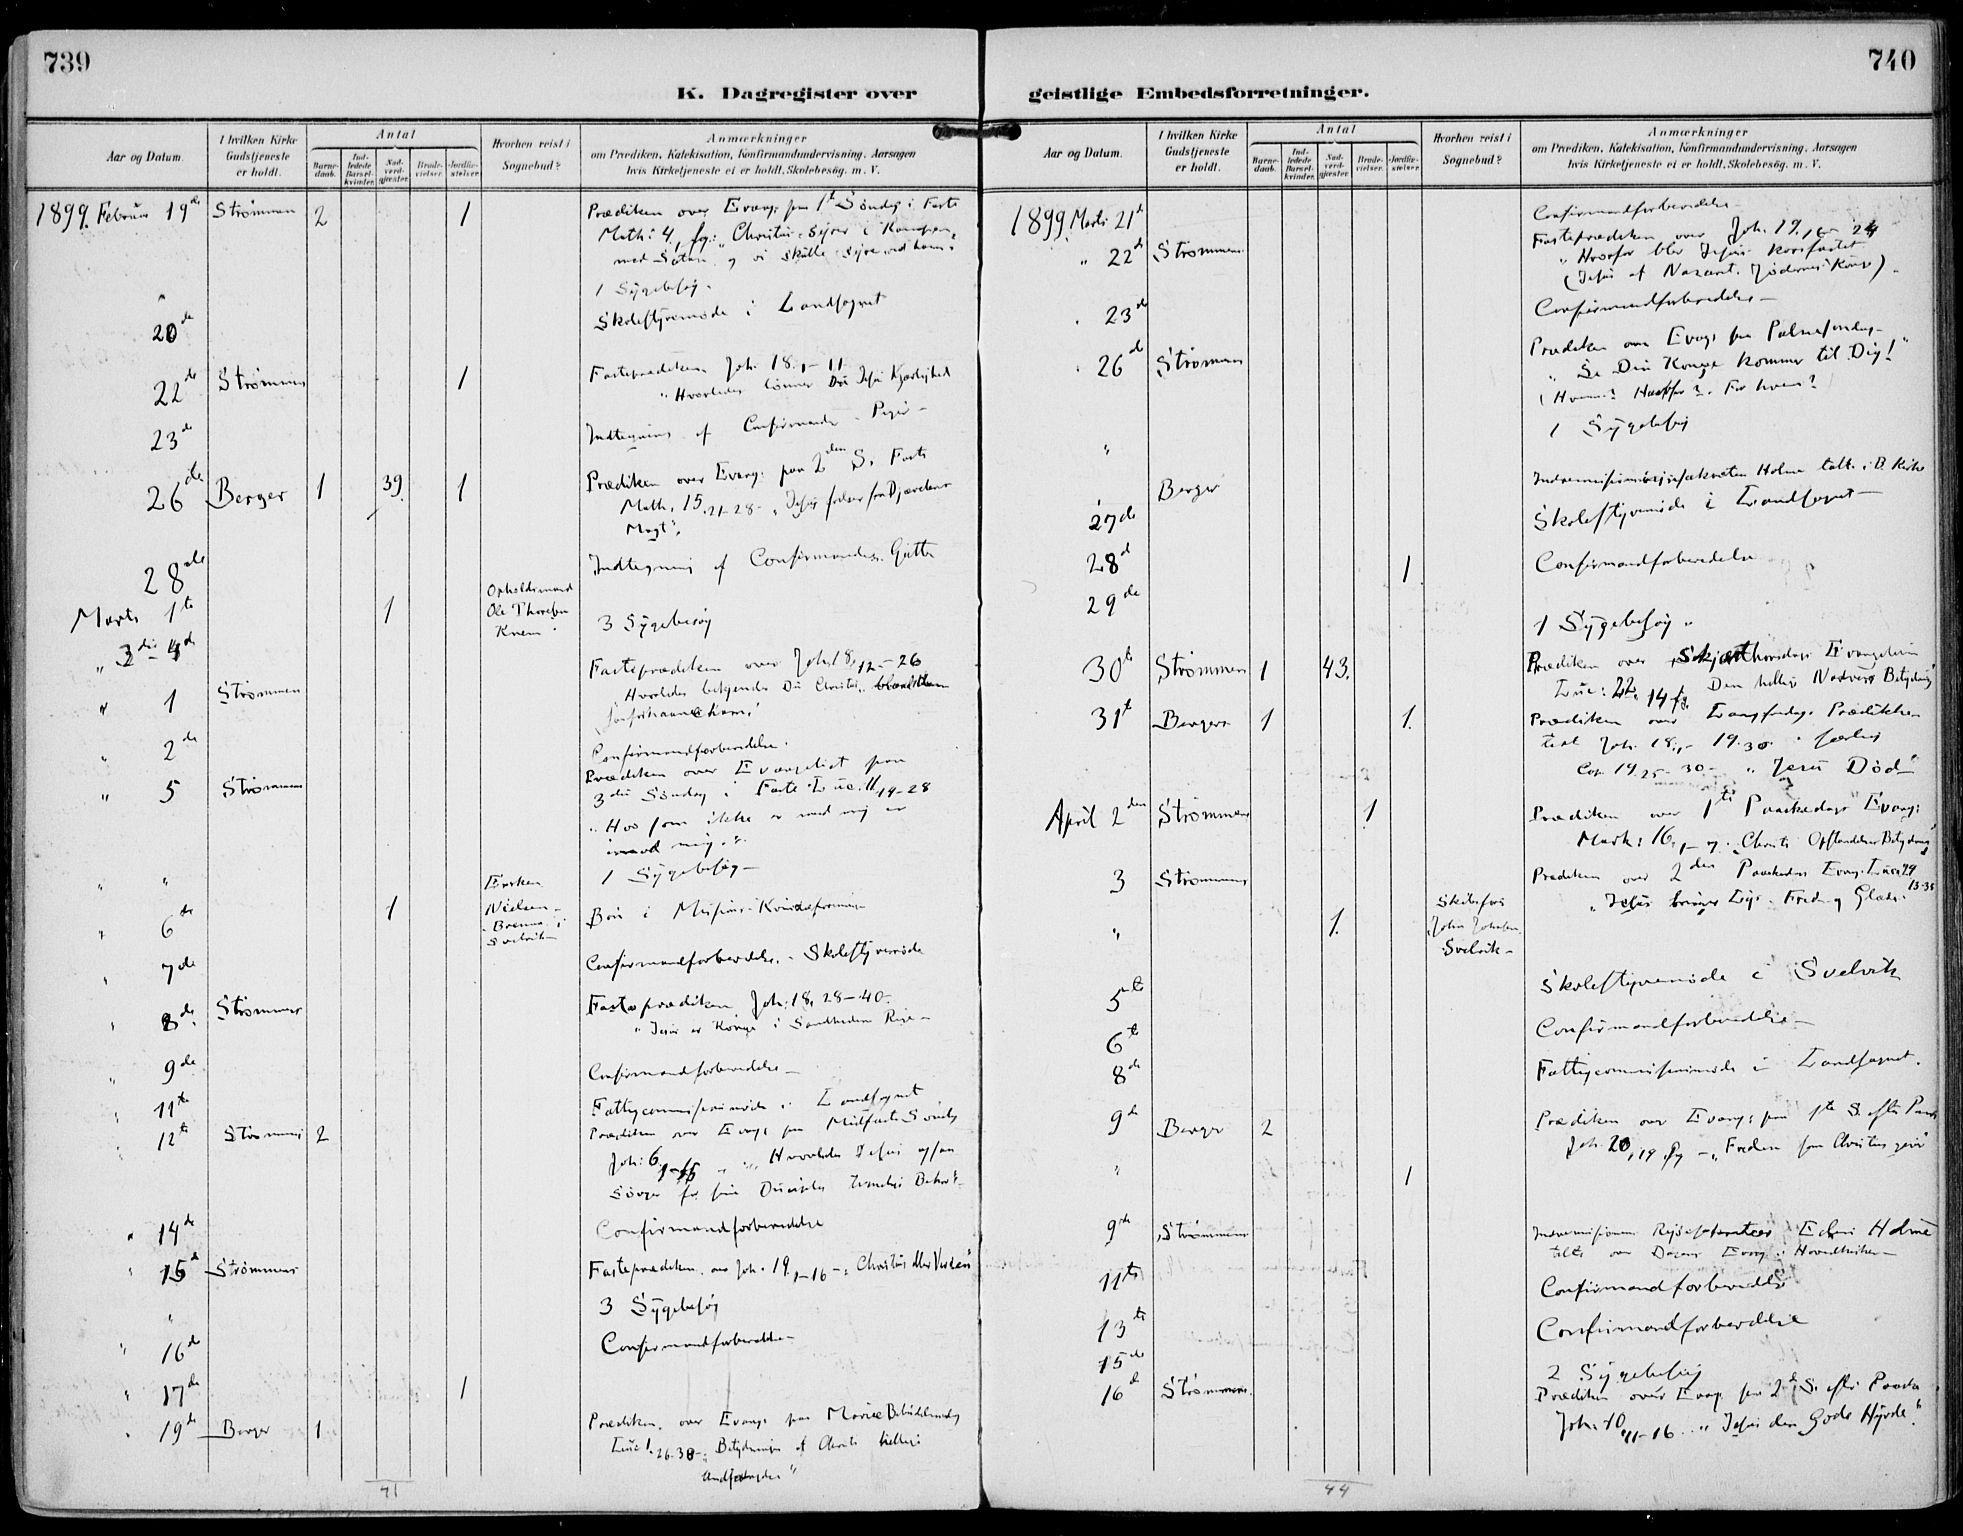 739
K. Dagregister over
Aar og Datum.
I hvilken Kirke Gudstjeneste er holdt.
Antal
Barne-daab.
Ind-ledede Barsel-kvinder.
Nad-verd-gjester.
Brude-vielser.
Jordfæ-stelser.
Hvorhen reist i Sognebud?
Anmærkninger
om Prædiken, Katekisation, Konfirmandundervisning, Aarsagen
hvis Kirketjeneste ei er holdt, Skolebesøg, m. V.
1899. Februar 19de Strømmen 2 1 Prædiken over Evang: paa 1ste Søndag i Faste
Math: 4, fg: "Christus Sejrer i Kampen
med Satan og vi skulle sejre ved ham"
1 Sygebesøg.
20de Skolestyremøde i Landsognet
22de Strømmen 1 Fasteprædiken Joh. 18, 1-11
"Hvorledes lønner Du Jesu Kjærlighed
23de Indtegning af Confirmander Piger
26de Berger 1 39. 1 Prædiken over Evang: paa 2den S. i Faste
Math. 15, 21-28 - "Jesus frelser fra Djævelens
Magt".
28de Indtegning af Confirmander. Gutter
Marts 1ste 1 Opholdsmand
Ole Thoresen
Knem
3 Sygebesøg
" 3die-4de
" 1 Strømmen Fasteprædiken over Joh. 18, 12-26
Hvorledes bekjender Du Christus
" 2de Confirmandforberedelse.
" 5 Strømmen Prædiken over Evangeliet paa
3die Søndag i Faste Luc. 11, 14-28
"Hvo som ikke er med mig er
imod mig."
" " 1 Sygebesøg
" 6te 1 Nielsen
Svelvik
Bøn i Missions Kvindeforening
" 7de Confirmandforberedelse. - Skolestyremøde
" 8de Strømmen Fasteprædiken Joh: 18, 28-40.
"Jesus er Konge i Sandhedens Rige
" 9de Confirmandforberedelse
" 11te Fattigcommissionsmøde i Landsognet
" 12te Strømmen 2 Prædiken over Evang: paa Midfaste Søndag
Joh: 6, 1-15 - "Hvorledes Jesus ogsaa
Sørger for sine Disciples timelige Behov"
" 14de Confirmandforberedelse
" 15de Strømmen Fasteprædiken over Joh. 19, 1-16 -
" 3 Sygebesøg
" 16de Confirmandforberedelse
" 17de 1
" 19de Berger 1 Prædiken over Evang: paa Mariæ Bebudelsesdag
Luc 1, 26-38 - "Betydningen af Christi hellige
Undfangelse"
41
740
geistlige Embedsforretninger.
Aar og Datum.
I hvilken Kirke Gudstjeneste er holdt.
Antal
Barne-daab.
Ind-ledede Barsel-kvinder.
Nad-verd-gjester.
Brude-vielser.
Jordfæ-stelser.
Hvorhen reist i Sognebud?
Anmærkninger
om Prædiken, Katekisation, Konfirmandundervisning, Aarsagen
hvis Kirketjeneste ei er holdt, Skolebesøg, m. V.
1899 Marts 21de Confirmandforberedelse
" 22de Strømmen Fasteprædiken over Joh. 19, 16-24
"Hvorfor blev Jesus korsfæstet
(Jesus af Nazaret. Jødernes Konge)
" 23de Confirmandforberedelse
" 26de Strømmen Prædiken over Evang: paa Palmesøndag
"Se Din Konge kommer til Dig!"
(Hvem? Hvorfor? For hvem?
" 1 Sygebesøg
Berger Indremissions Holme talte i B. Kirke
27de Skolestyremøde i Landsognet
28de 1 Confirmandforberedelse
29de 1 Sygebesøg
30te Strømmen 1 43. Prædiken over Skjærthorsdags Evangelium
Luc: 22, 14 fg. Den hellige Nadvers Betydning
31te Berger 1 1. Prædiken over Langfredags Prædiken
text Joh. 18, 1 - 19, 30.
Cap. 19, 25-30 - "Jesu Død"
April 2den Strømmen 1 Prædiken over 1ste Paaskedags Evang:
Mark: 16, 1-7. "Christi Opstandelses Betydning"
3 Strømmen Prædiken over 2den Paaskedags Evang. Luc 24
13-35
"Jesus bringer Lys. Fred og Glæde"
" 1. John Johnsen
Svelvik
5te Skolestyremøde i Svelvik
6te Confirmandforberedelse
8de Fattigcommissionsmøde i Landsognet.
9de Berger 2 Prædiken over Evang: paa 1ste S. efter Paaske
Joh. 20, 19 fg - "Freden som Christus giver"
" 1
9de Strømmen Indremissionens Edvin Holme
talte over Dagens Evang. i Hovedkirken
11te Confirmandforberedelse
13te Confirmandforberedelse
15de 2 Sygebesøg
16de Strømmen Prædiken over Evang. paa 2den S. efter Paaske
Joh: 10, 11-16 "Jesus den Gode Hyrde."
44